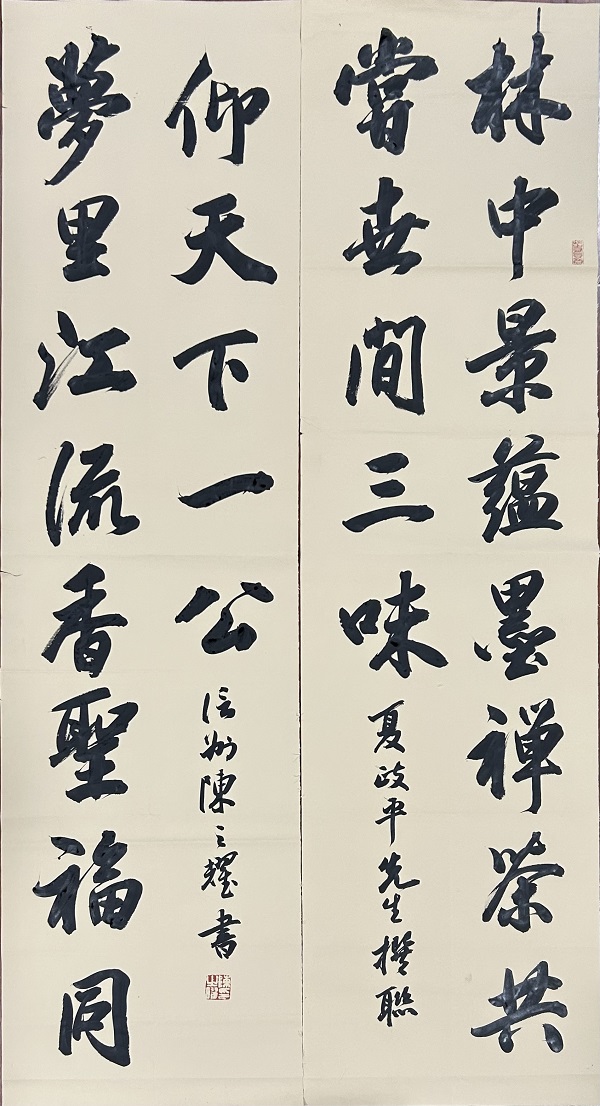 林中景蕴墨禅茶共
嘗世間三味
夏政平先生撰聯
夢里江流香聖福同
仰天下一公
信州陳之耀書